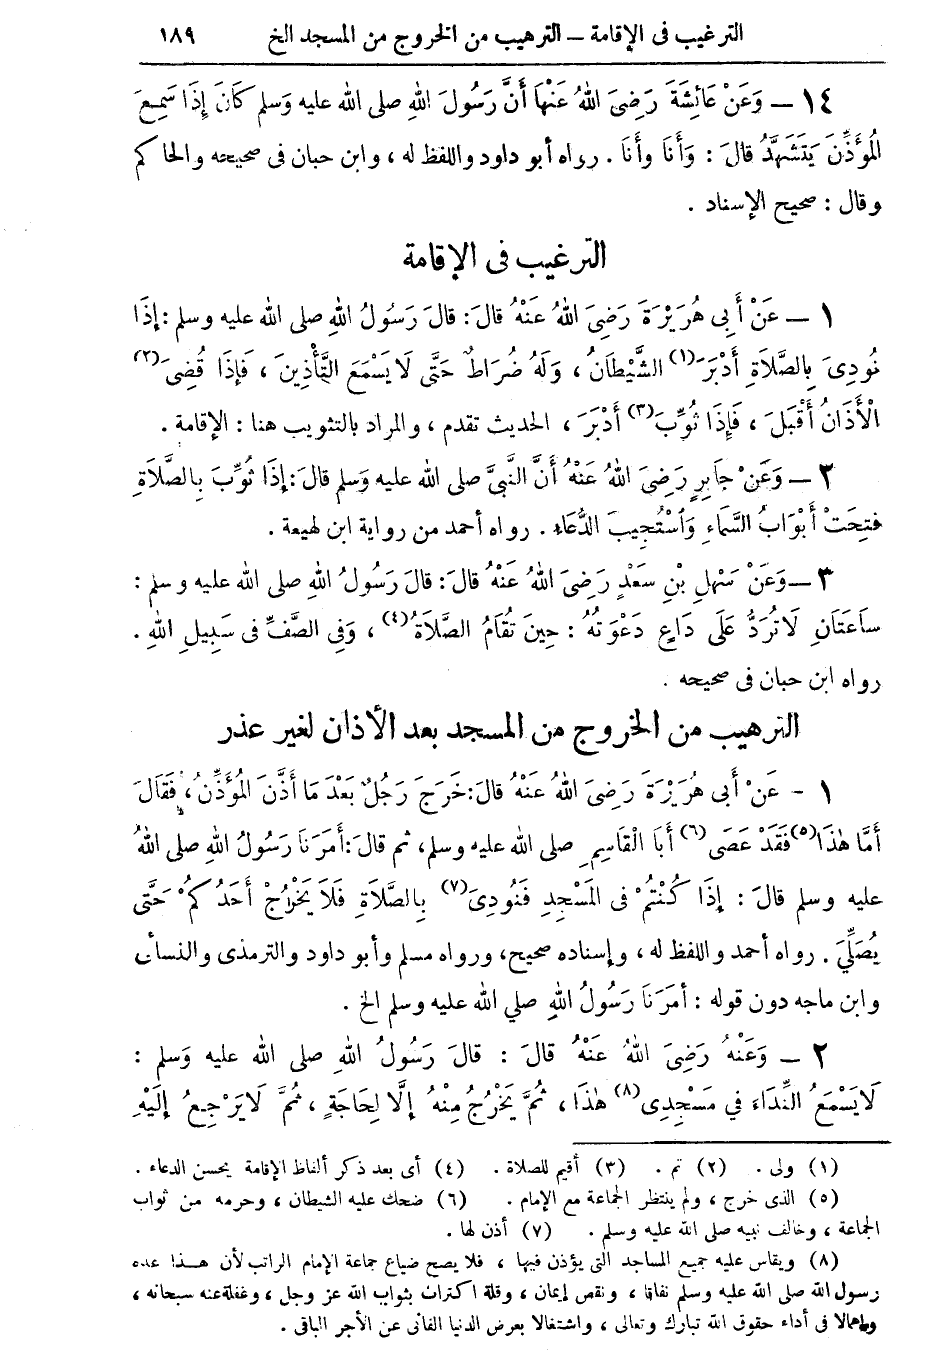 الترغيب فى الإقامة – الترهيب من الخروج من المسجد الخ ١٨٩
١٤ – وَعَنْ عَائِشَةَ رَضِىَ اللهُ عَنْهَا أَنَّ رَسُولَ اللهِ صلى الله عليه وَسلم كَانَ إِذَا سَمِعَ
الْمُؤَذِّنَ يَتَشَهَّدُ قالَ : وَأَنَا وأَنَا . رواه أبو داود واللفظ له ، وابن حبان فى صحيحه والحاكم
وقال : صحيح الإسناد .
الترغيب فى الإقامة
١ – عَنْ أَبِى هُرَيْرَةَ رَضِىَ اللهُ عَنْهُ قالَ : قالَ رَسُولُ اللهِ صلى الله عليه وسلم : إِذَا
نُودِىَ بِالصَّلَاةِ أَدْبَرَ(١) الشَّيْطَانُ ، وَلَهُ ضُرَاطٌ حَتَّى لَا يَسْمَعَ التَّأْذِينَ ، فَإِذَا قُضِىَ(٢)
الْأَذَانُ أَقْبَلَ ، فَإِذَا ثُوِّبَ(٣) أَدْبَرَ ، الحديث تقدم ، والمراد بالتثويب هنا : الإقامة .
٢ – وَعَنْ جَابِرٍ رَضِىَ اللهُ عَنْهُ أَنَّ النَّبِىَّ صلى الله عليه وَسلم قالَ : إِذَا ثُوِّبَ بِالصَّلَاةِ
فُتِحَتْ أَبْوَابُ السَّمَاءِ وَاسْتُجِيبَ الدُّعَاءُ . رواه أحمد من رواية ابن لهيعة .
٣ – وَعَنْ سَهْلِ بْنِ سَعْدٍ رَضِىَ اللهُ عَنْهُ قالَ : قالَ رَسُولُ اللهِ صلى الله عليه وسلم :
سَاعَتَانِ لَا تُرَدُّ عَلَى دَاعٍ دَعْوَتُهُ : حِينَ تُقَامُ الصَّلَاةُ(٤) ، وَفِى الصَّفِّ فى سَبِيلِ اللهِ .
رواه ابن حبان فى صحيحه .
الترهيب من الخروج من المسجد بعد الأذان لغير عذر
١ – عَنْ أَبِى هُرَيْرَةَ رَضِىَ اللهُ عَنْهُ قالَ : خَرَجَ رَجُلٌ بَعْدَ مَا أَذَّنَ الْمُؤَذِّنُ ، فَقَالَ
أَمَّا هٰذَا(٥) فَقَدْ عَصَى(٦) أَبَا الْقَاسِمِ صلى الله عليه وسلم ، ثم قالَ : أَمَرَنَا رَسُولُ اللهِ صلى اللهُ
عليه وسلم قالَ : إِذَا كُنْتُمْ فى الْمَسْجِدِ فَنُودِىَ(٧) بِالصَّلَاةِ فَلَا يَخْرُجْ أَحَدُكُمْ حَتَّى
يُصَلِّىَ . رواه أحمد واللفظ له ، وإسناده صحيح، ورواه مسلم وأبو داود والترمذى والنسائى
وابن ماجه دون قوله : أَمَرَنَا رَسُولُ اللهِ صلي الله عليه وسلم الخ .
٢ – وَعَنْهُ رَضِىَ اللهُ عَنْهُ قالَ : قالَ رَسُولُ اللهِ صلى الله عليه وَسلم :
لَا يَسْمَعُ النِّدَاءَ فى مَسْجِدِى(٨) هٰذَا ، ثُمَّ يَخْرُجُ مِنْهُ إِلَّا لِحَاجَةٍ ، ثُمَّ لَا يَرْجِعُ إِلَيْهِ
(١) ولى . (٢) تم . (٣) أقيم للصلاة . (٤) أى بعد ذكر ألفاظ الإقامة يحسن الدعاء .
(٥) الذى خرج ، ولم ينتظر الجماعة مع الإمام . (٦) ضحك عليه الشيطان ، وحرمه من ثواب
الجماعة ، وخالف نبيه صلى الله عليه وسلم . (٧) أذن لها .
(٨) ويقاس عليه جميع المساجد التى يؤذن فيها ، فلا يصح ضياع جماعة الإمام الراتب لأن هذا عده
رسول الله صلى الله عليه وسلم نفاقا ، ونقص إيمان ، وقلة اكتراث بثواب الله عز وجل ، وغفلة عنه سبحانه ،
وإهمالا فى أداء حقوق الله تبارك وتعالى ، واشتغالا بعرض الدنيا الفانى عن الأجر الباقى .